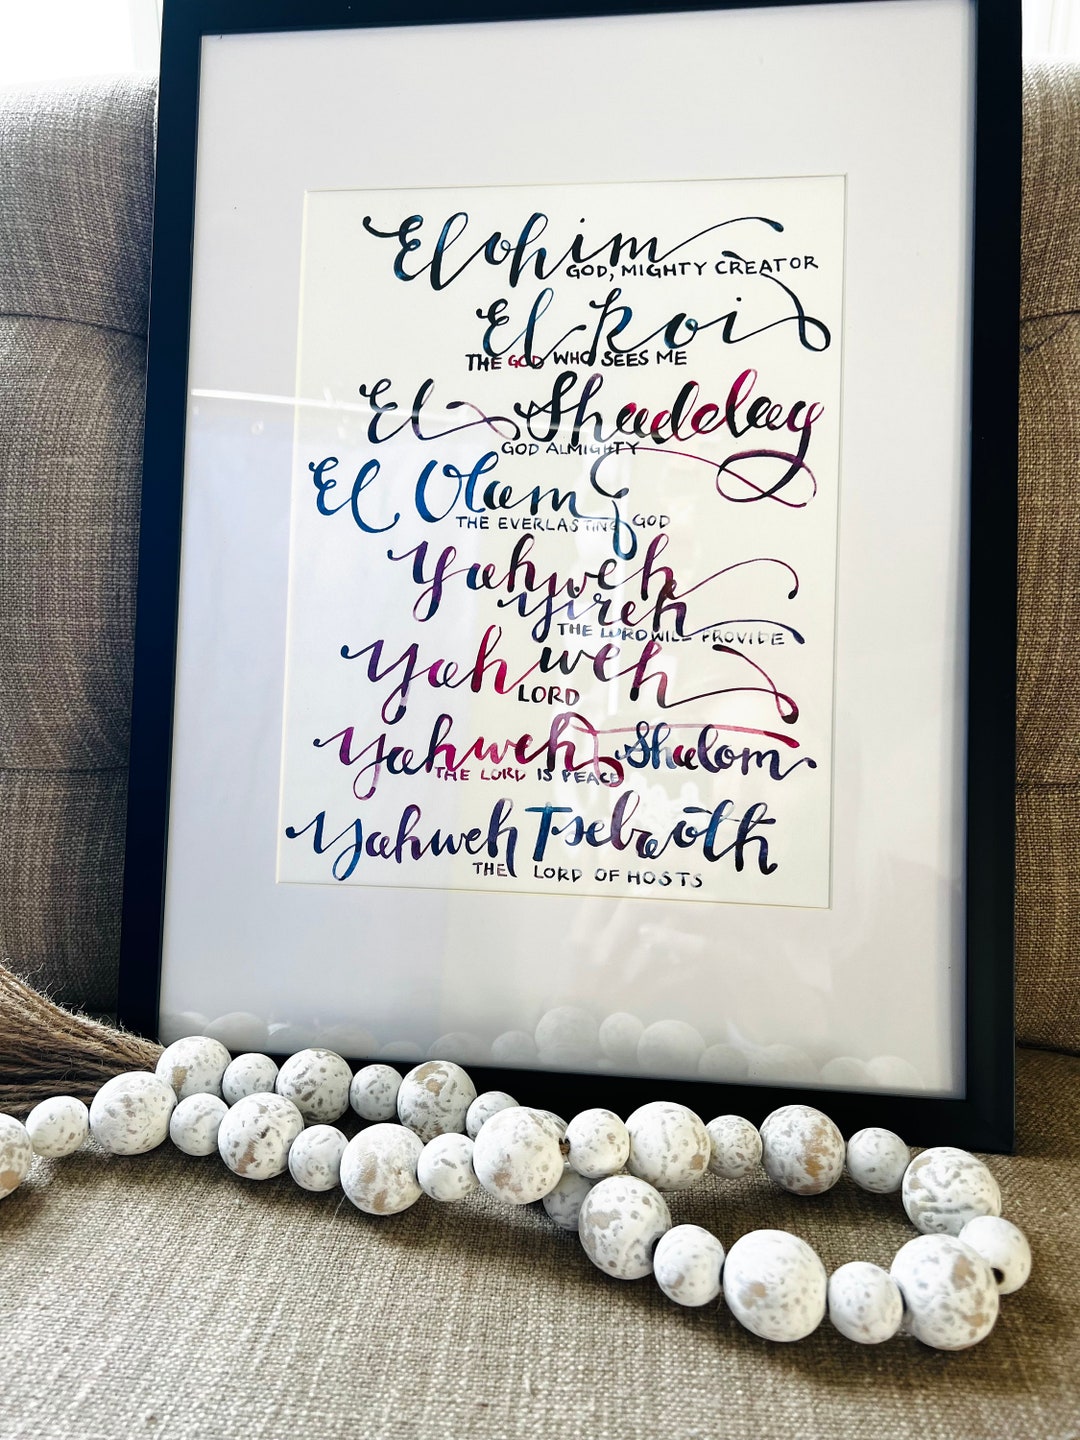 Elohim
GOD, MIGHTY CREATOR
El Roi
THE GOD WHO SEES ME
El Shadday
GOD ALMIGHTY
El Olam
THE EVERLASTING GOD
Yahweh
Yireh
THE LORD WILL PROVIDE
Yahweh
LORD
Yahweh Shalom
THE LORD IS PEACE
Yahweh Tsebaōth
THE LORD OF HOSTS